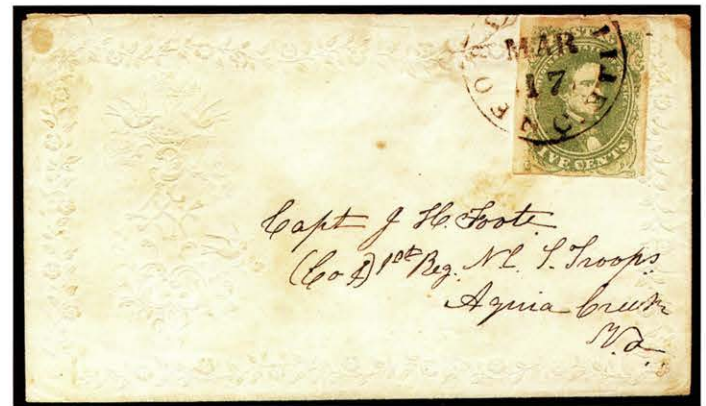 MAR
17
N. C.
FIVE CENTS
Capt J H. Foote
(Co I) 1st Reg. N C. S. Troops
Aquia Creek
Va